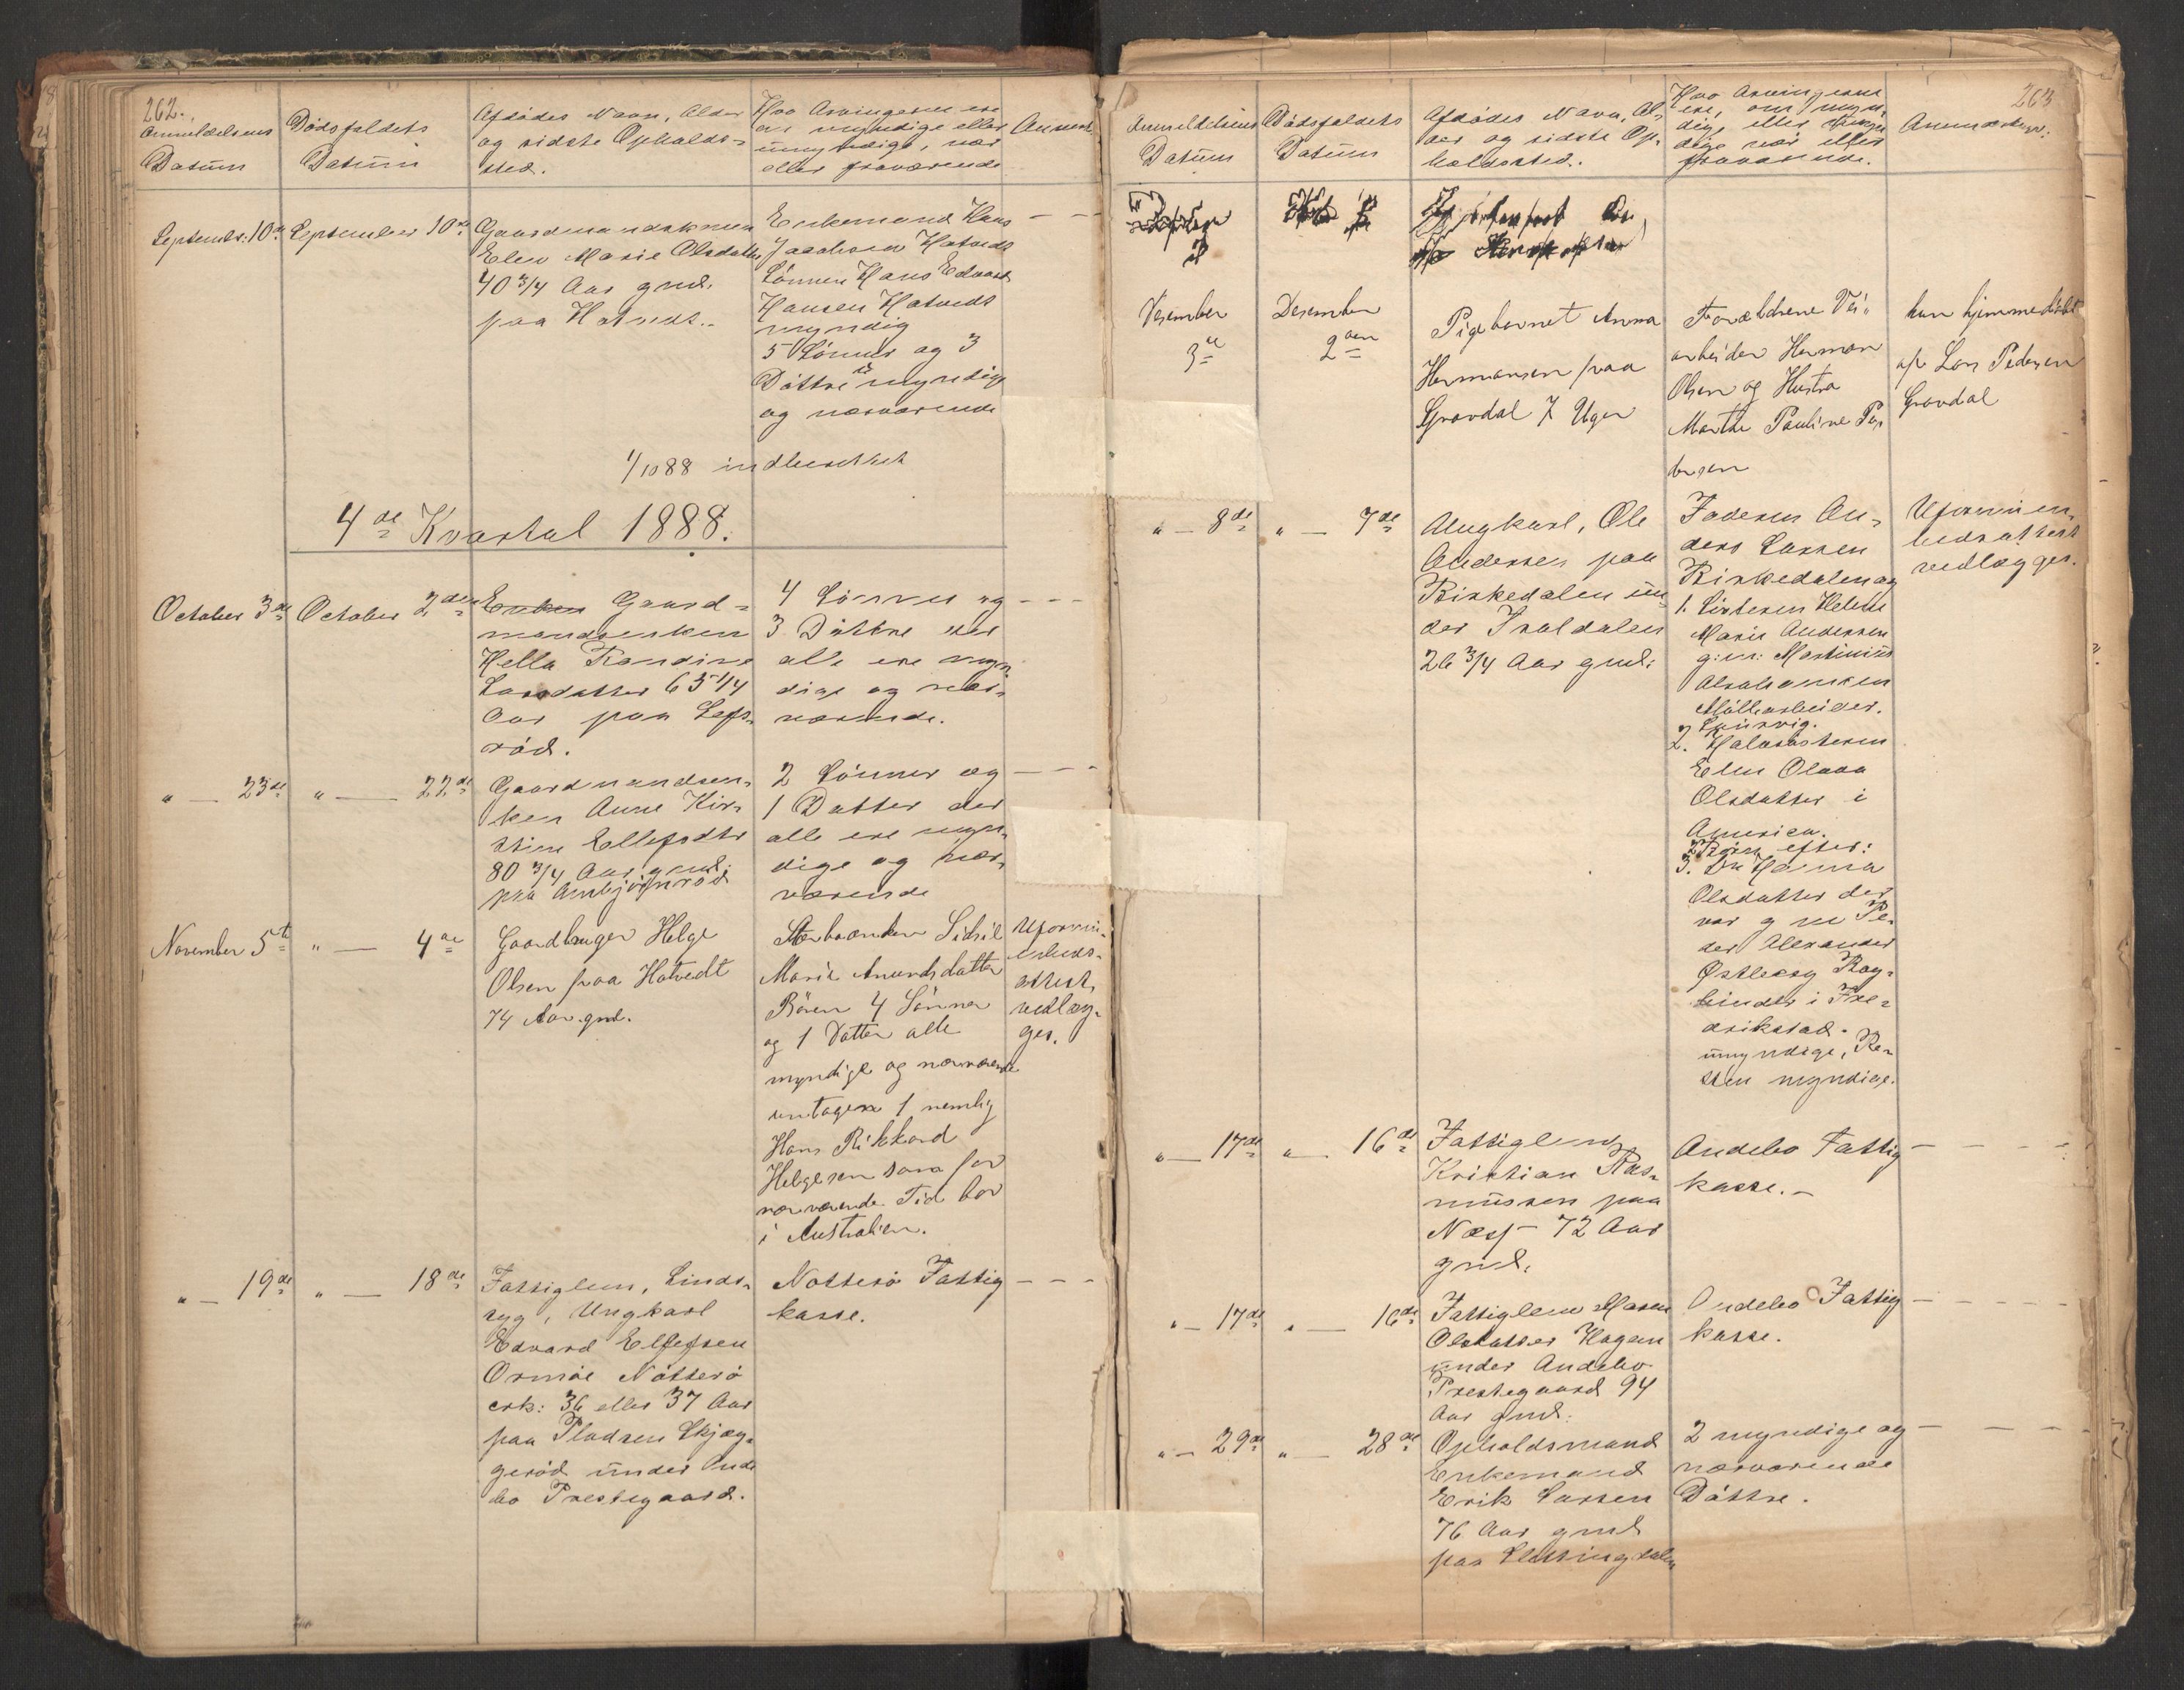 262.
Anmeldelsens
Datum
Dødsfaldets
Datum
Afdødes Navn, Alder
og sidste Opholds-
sted.
Hvo Arvingerne ere
om myndige eller
umyndige, nær
eller fraværende
Anmerk.
September 10de
September 10de
Gaardmandskonen
Elen Marie Olsdatter
40 3/4 Aar gml.
paa Hotvedt.
Enkemand Hans
Jacobsen Hotvedt
Sønnen Hans Edvard
Hansen Hotvedt
myndig
5 Sønner og 3
Døttre umyndige
og nærværende
1/10 88 indberettet
4de Kvartal 1888.
October 3de
October 2den
Enken Gaard-
mandsenken
Hella Randine
Larsdatter 65 1/4
Aar paa Lefs-
rød.
4 Sønner og
3 Døttre der
alle ere myn-
dige og nær-
værende.
" — 23de
" — 22de
Gaardmandsen-
ken Anne Kir-
stine Ellefsdtr
80 3/4 Aar gml.
paa Anbjørnrød
2 Sønner og
1 Datter der
alle ere myn-
dige og nær-
værende
November 5te
" — 4de
Gaardbruger Helge
Olsen paa Hotvedt
74 Aar gml.
Sidsil
Marie Anundsdatter
Børn 4 Sønner
og 1 Datter alle
myndige og nærværende
untagen 1 nemlig
Hans Rikkard
Helgesen som for
nærværende Tid bor
i Australien.
Uformu-
enheds-
attest
vedlæg-
ges.
" — 19de
" — 18de
Fattiglem, Sinds-
syg, Ungkarl
Edvard Ellefsen
Ormøe Nøtterø
cirk: 36 eller 37 Aar
paa Pladsen Skjæg-
gerød under Ande
bo Prestegaard.
Nøtterø Fattig
kasse.
263
Anmeldelsens
Datum
Dødsfaldets
Datum
Afdødes Navn, Al-
der og sidste Op-
holdssted.
Hvo Arvingerne
ere, om myn-
dige eller umyn
dige nær eller
fraværende.
Anmærkn:
Desember
3de
Desember
2den
Pigebarnet Anna
Hermansen paa
Gravdal 7 Uger
Forældrene Vei-
arbeider Herman
Olsen og Hustru
Marthe Pauline Pe-
dersen
hun hjemmedøbt
af Lars Pedersen
Gravdal
" — 8de
" — 7de
Ungkarl, Ole
Andersen paa
Birkedalen un-
der Troldalen
26 3/4 Aar gml:
Faderen An-
ders Larsen
Birkedalen og
1. Søsteren Helene
Marie Andersen
g: m: Martinius
Abrahamsen
Møllearbeider.
Laurvig.
2. Halvsøsteren
Elen Olava
Olsdatter i
America.
2 Børn efter:
3. Do Helma
Olsdatter der
var g m Pe-
der Alexander
Østleby Bog-
binder i Fre-
drikstad.
umyndige, Re-
sten myndige.
Uformuen-
hedsattest
vedlægges.
" — 17de
" — 16de
Fattiglem
Kristian Ras-
mussen paa
Næss 72 Aar
gml.
Andebo Fattig
kasse.
" — 17de
" — 16de
Fattiglem Maren
Olsdatter Hagen
under Andebo
Prestegaard 94
Aar gml.
Andebo Fattig
kasse.
" — 29de
" — 28de
Opholdsmand
Enkemand
Erik Larsen
76 Aar gml
paa
2 myndige og
nærværende
Døttre.